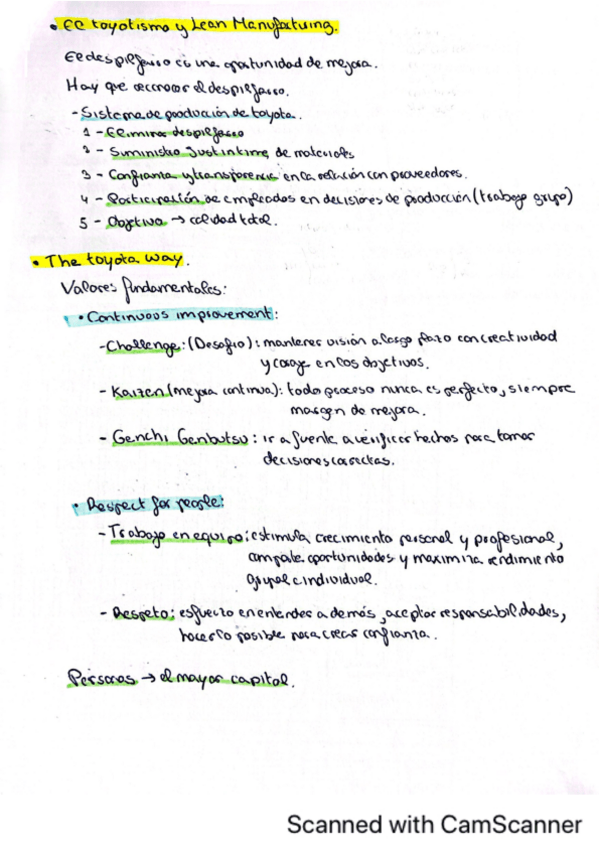 • El toyotismo y Lean Manufacturing.
El despilfarro es una oportunidad de mejora.
Hay que reconocer el despilfarro.
- Sistema de producción de toyota.
1 - Eliminar despilfarro
2 - Suministro Just in time de materiales
3 - Confianza y transparencia en la relación con proveedores.
4 - Participación de empleados en decisiones de producción (trabajo grupo)
5 - Objetivo → calidad total.
• The toyota way.
Valores fundamentales:
• Continuous improvement:
- Challenge: (Desafio): mantener visión a largo plazo con creatividad
y coraje en los objetivos.
- Kaizen (mejora continua): todo proceso nunca es perfecto, siempre
margen de mejora.
- Genchi Genbutsu: ir a fuente a verificar hechos para tomar
decisiones correctas.
• Respect for people:
- Trabajo en equipo: estimula crecimiento personal y profesional,
comparte oportunidades y maximiza rendimiento
grupal e individual.
- Respeto: esfuerzo en entender a demás, aceptar responsabilidades,
hacer lo posible para crear confianza.
Personas → el mayor capital.
Scanned with CamScanner